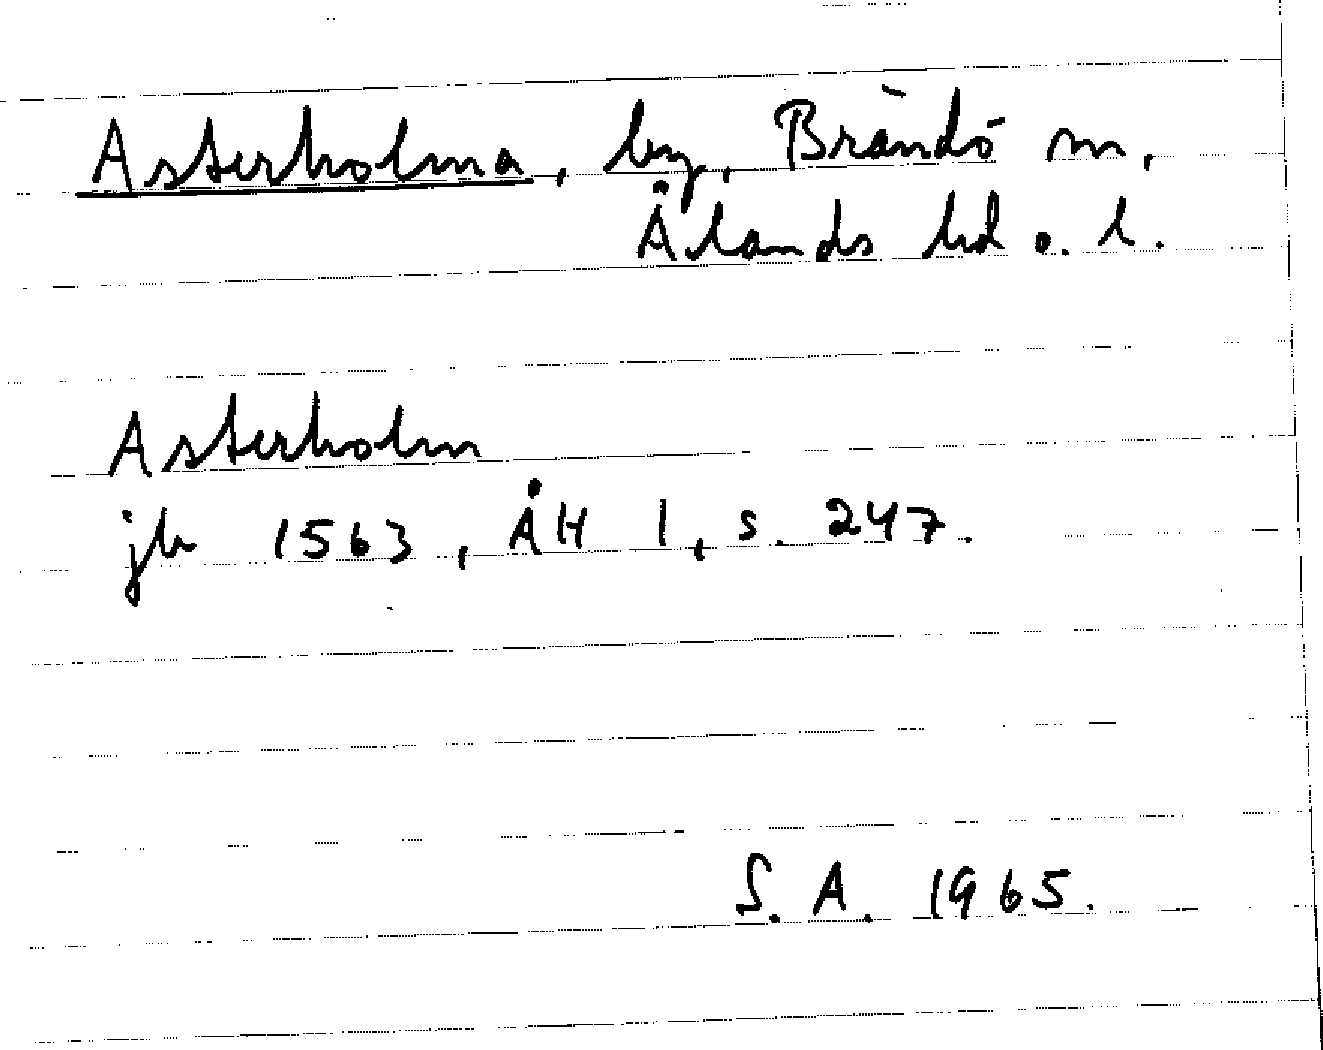 Asterholma, by, Brändö sn,
Ålands hd o. l.
Asterholm
jb 1563, ÅH 1, s. 247.
S. A. 1965.